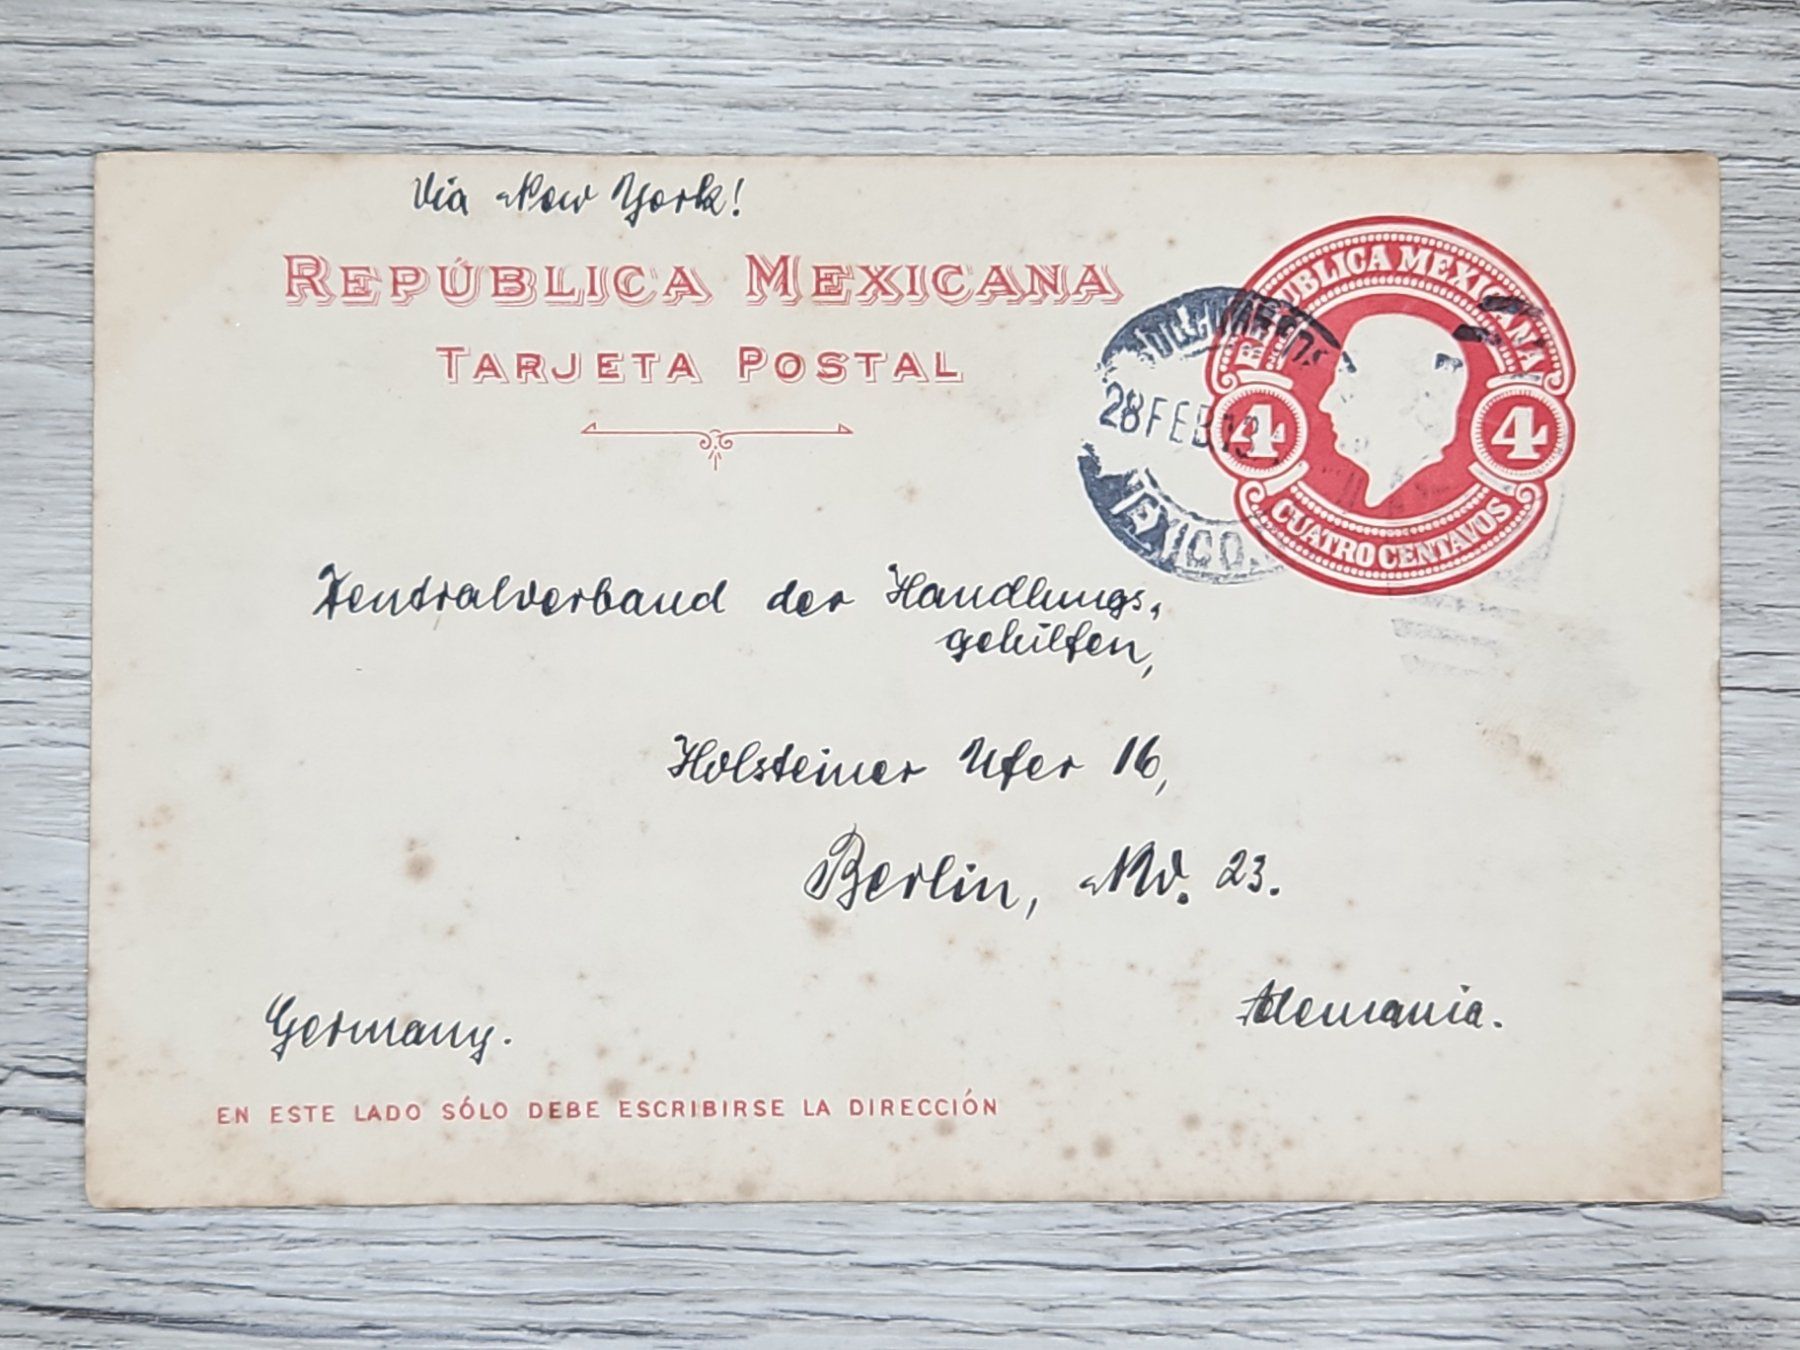 Via New York!
REPÚBLICA MEXICANA
TARJETA POSTAL
REPUBLICA MEXICANA
4 4
CUATRO CENTAVOS
28 FEB
MEXICO
Zentralverband der Handlungs-
gehilfen,
Holsteiner Ufer 16,
Berlin, NW. 23.
Germany.
Alemania.
EN ESTE LADO SÓLO DEBE ESCRIBIRSE LA DIRECCIÓN